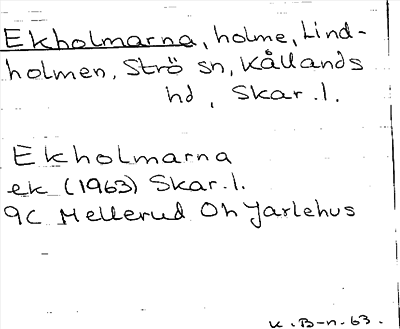 Ekholmarna, holme, Lind-
holmen, Strö sn, Kållands
hd, Skar.l.
Ekholmarna
ek (1963) Skar.l.
9C Mellerud Oh Jarlehus
K.B-n.63.